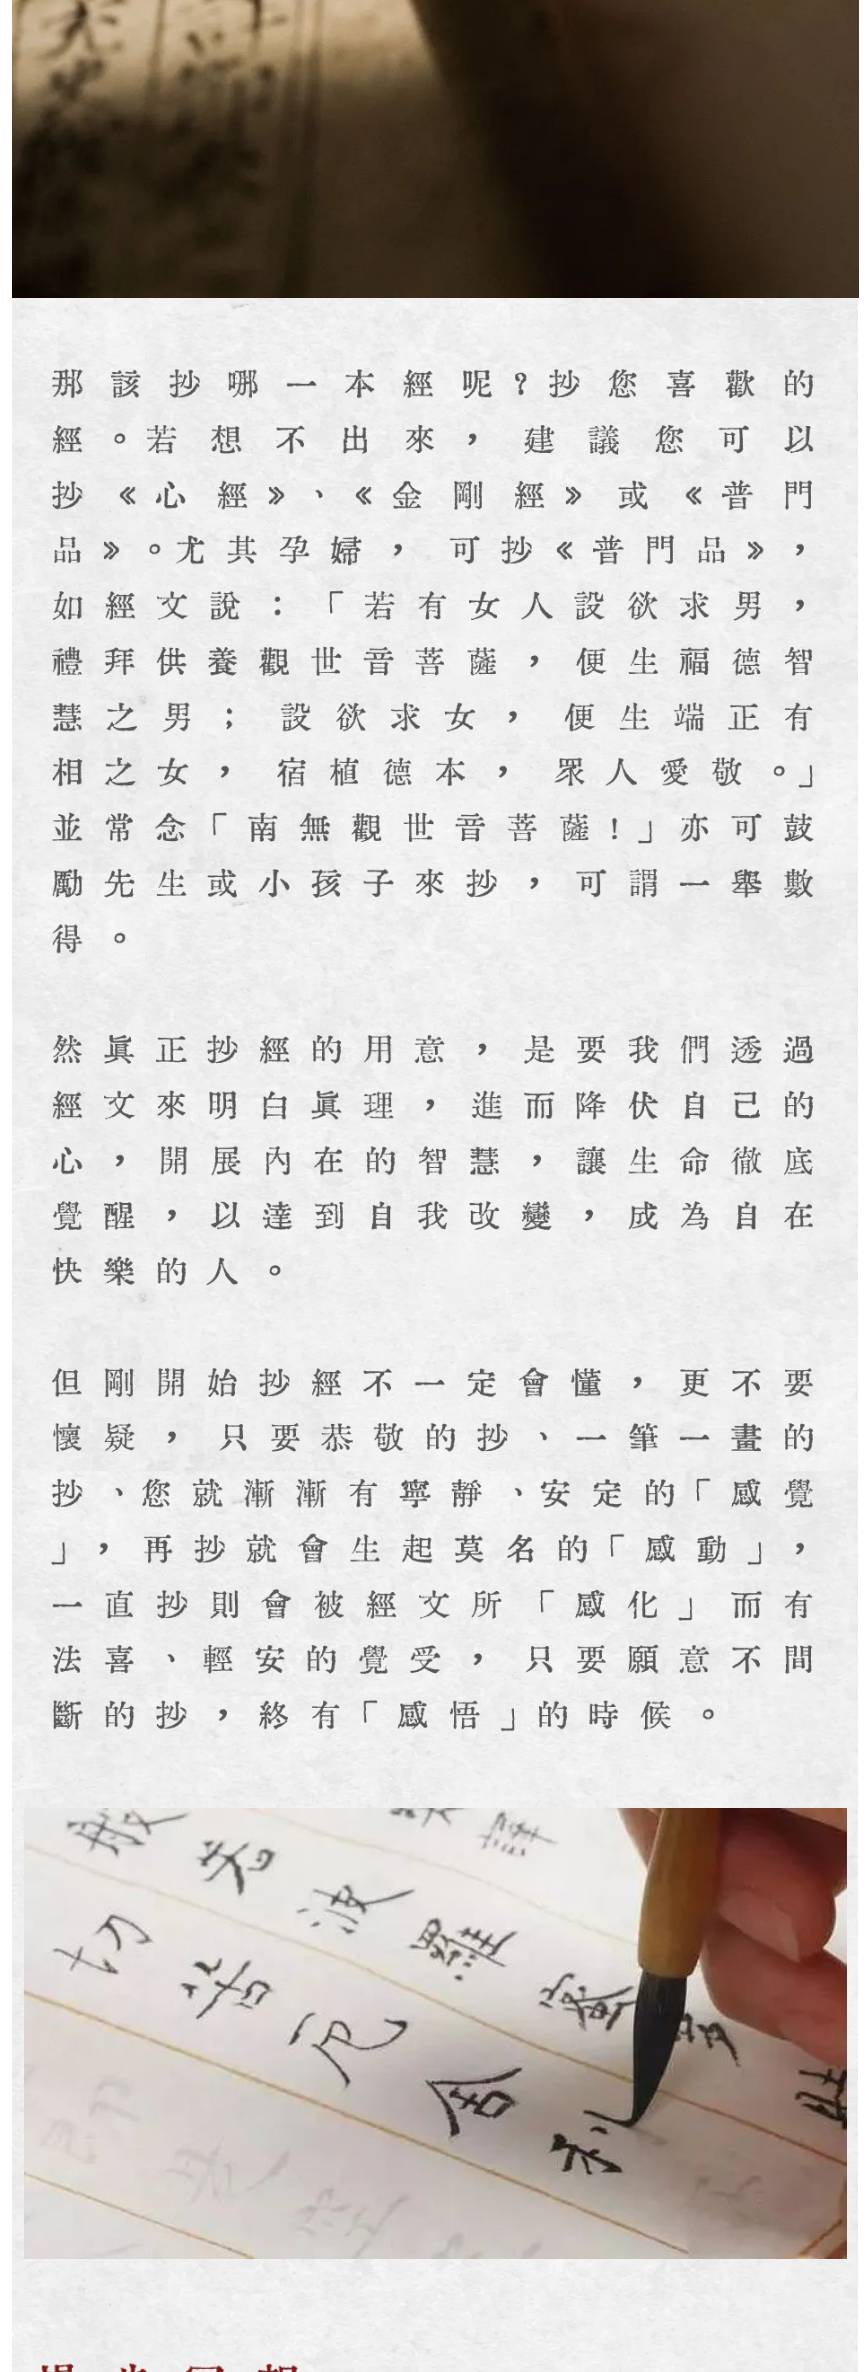 那該抄哪一本經呢?抄您喜歡的
經。若想不出來,建議您可以
抄《心經》、《金剛經》或《普門
品》。尤其孕婦,可抄《普門品》,
如經文說:「若有女人設欲求男,
禮拜供養觀世音菩薩,便生福德智
慧之男;設欲求女,便生端正有
相之女,宿植德本,眾人愛敬。」
並常念「南無觀世音菩薩!」亦可鼓
勵先生或小孩子來抄,可謂一舉數
得。
然眞正抄經的用意,是要我們透過
經文來明白眞理,進而降伏自己的
心,開展內在的智慧,讓生命徹底
覺醒,以達到自我改變,成為自在
快樂的人。
但剛開始抄經不一定會懂,更不要
懷疑,只要恭敬的抄、一筆一畫的
抄、您就漸漸有寧靜、安定的「感覺
」,再抄就會生起莫名的「感動」,
一直抄則會被經文所「感化」而有
法喜、輕安的覺受,只要願意不間
斷的抄,終有「感悟」的時候。
般若波羅蜜多
切苦厄舍利